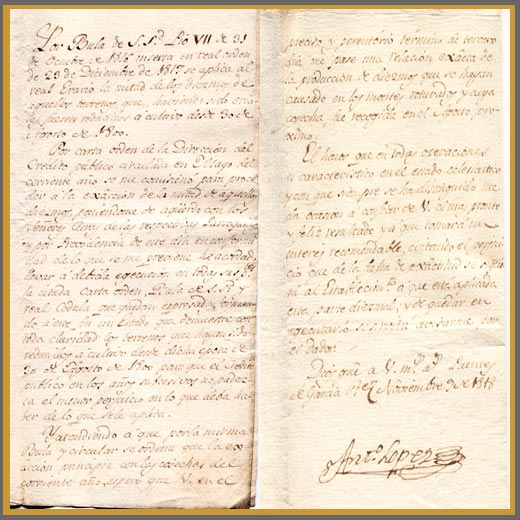 Por Bula de S.S.d Pio VII de 31
de Octubre de 1816 inserta en real orden
de 29 de Diciembre de 1817 se aplica al
real Erario la mitad de los diezmos de
aquellos terrenos que, haviendo sido eria-
les, fuesen reducidos a cultivo desde 30 de
Agosto de 1800.
Por carta orden de la Dirección del
Crédito público circulada en Mayo del
corriente año se me comisionó para proce-
der a la exacción de la mitad de aquellos
diezmos, poniendome de acuerdo con los
Señores Curas de las respectivas Parroquias
y en por Providencia de este dia en conformi-
dad de lo que se me previene he acordado
llevar a debida egecucion en todas sus ptes
la citada carta orden, Bula de S.S.d y
real Cedula que quedan espresadas,
do a este fin un Estado que demuestre con
toda claridad los terrenos que hayan sido
reducidos a cultivo desde dicha época de
30 de Agosto de 1800 para que el Credito
publico en los años subcesivos no padez-
ca el menor perjuicio en lo que deba ha-
ber de lo que se le aplica.
Y atendiendo a que por la misma
Bula y circular se ordena que la ex-
acción principie con las cosechas del
corriente año, espero que V. en el
preciso y perentorio termino de tercero
dia me pase una relacion exâcta de
la produccion de diezmos que se hayan
causado en los montes roturados y cuya
cosecha fue recogida en el Agosto pro-
ximo.
El honor que en todas operaciones
es caracteristico en el estado eclesiastico
y con que siempre se ha distinguido me
da ocasion a confiar de V. el mas pronto
y feliz resultado ya que tomará un
interes recomendable, evitando el perjui-
cio que de la falta de exâctitud se
ria al Establecim.to a que está aplicada
esta parte diezmal, y de quedar en
egecutarlo se servirá avisarme con
el dador.
Dios gue a V. m.s a.s Puentes
de Garcia Rz Noviembre 9 de 1818
Ant.o Lopez